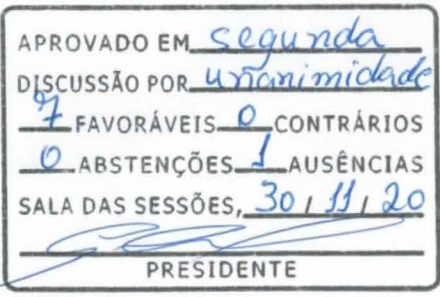 APROVADO EM segunda
DISCUSSÃO POR unanimidade
7 FAVORÁVEIS 0 CONTRÁRIOS
0 ABSTENÇÕES 1 AUSÊNCIAS
SALA DAS SESSÕES, 30 / 11 / 20
PRESIDENTE